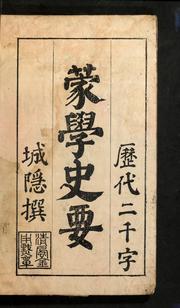 歷代二千字
蒙學史要
城隱撰